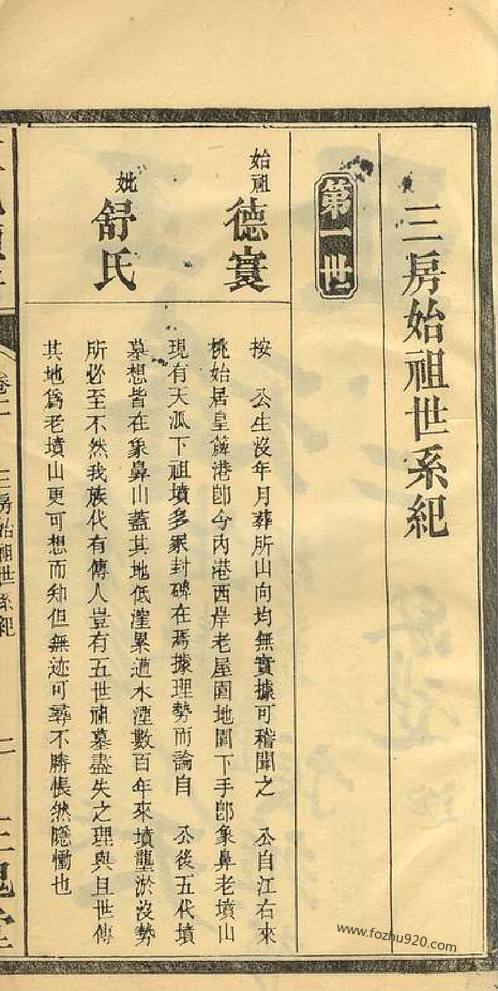 三房始祖世系紀
第一世
始祖
德寰
妣
舒氏
按　公生沒年月葬所山向均無實據可稽聞之　公自江右來
桃始居皇簰港卽今內港西岸老屋園地園下手卽象鼻老墳山
現有天泒下祖墳多冢封碑在焉據理勢而論自　公後五代墳
墓想皆在象鼻山蓋其地低漥累遭水湮數百年來墳壟淤沒勢
所必至不然我族代有傳人豈有五世祖墓盡失之理與且世傳
其地爲老墳山更可想而知但無迹可尋不勝悵然隱慟也
卷一
三房始祖世系紀
www.fozhu920.com